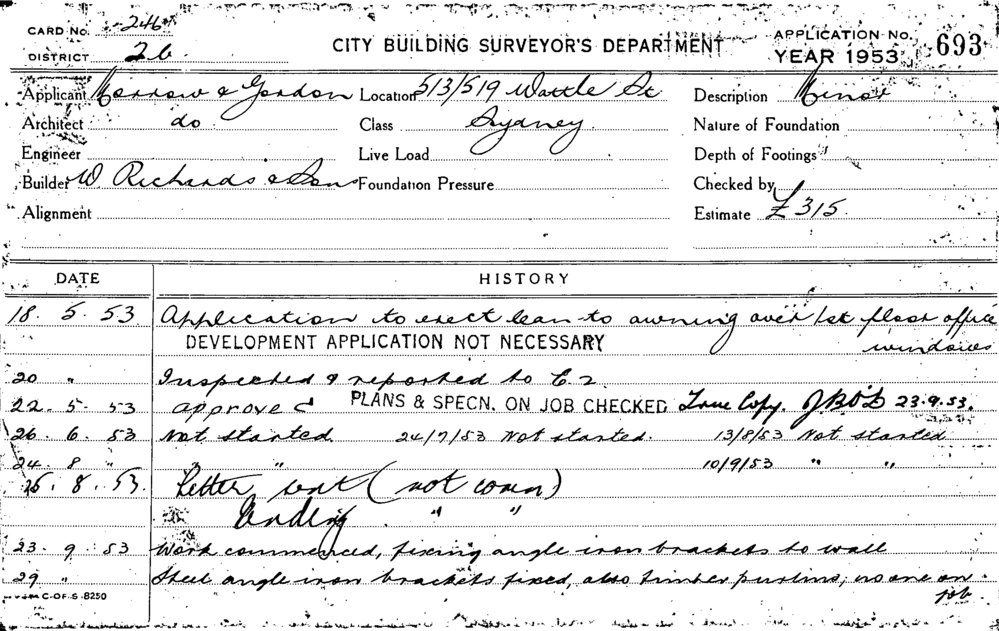 CARD No. 246
DISTRICT 26
CITY BUILDING SURVEYOR'S DEPARTMENT
APPLICATION No. 693
YEAR 1953
Applicant Morrow & Gordon Location 513/519 Wattle St Description Minor
Architect do Class Sydney. Nature of Foundation
Engineer Live Load Depth of Footings
Builder W Richards & Sons Foundation Pressure Checked by
Alignment Estimate £315.
DATE HISTORY
18. 5. 53 Application to erect lean-to awning over 1st floor office
DEVELOPMENT APPLICATION NOT NECESSARY windows
20 " Inspected & reported to C.2.
22. 5. 53 approved PLANS & SPECN. ON JOB CHECKED True Copy. 23.9.53.
26. 6. 53 Not started. 24/7/53 Not started. 13/8/53 Not started
24. 8 " " 10/9/53 " "
25. 8. 53. Letter sent (not comn)
" "
23. 9. 53 Work commenced, fixing angle iron brackets to wall
29 " Steel angle iron brackets fixed, also timber purlins, no one on
job.
C-OF-S-8250